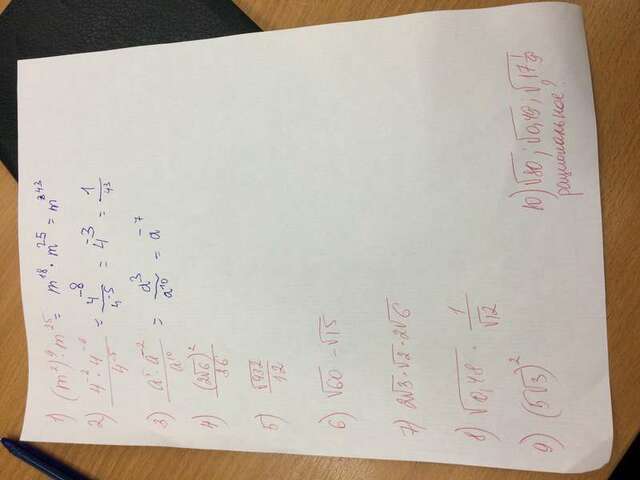 1) (m²)⁹ · m²⁵ = m¹⁸ · m²⁵ = m⁴³
2) 4⁻² · 4⁻⁶ / 4⁻⁵ = 4⁻⁸ / 4⁻⁵ = 4⁻³ = 1 / 43
3) = a³ / a¹⁰ = a⁻⁷
4) (2√6)² / 36
5) √432 / 12
6) √60 - √15
7) 2√3 · √2 · 2√6
8) √0,48 · 1 / √12
9) (5√3)²
10) √80; √0,49;
рациональное?